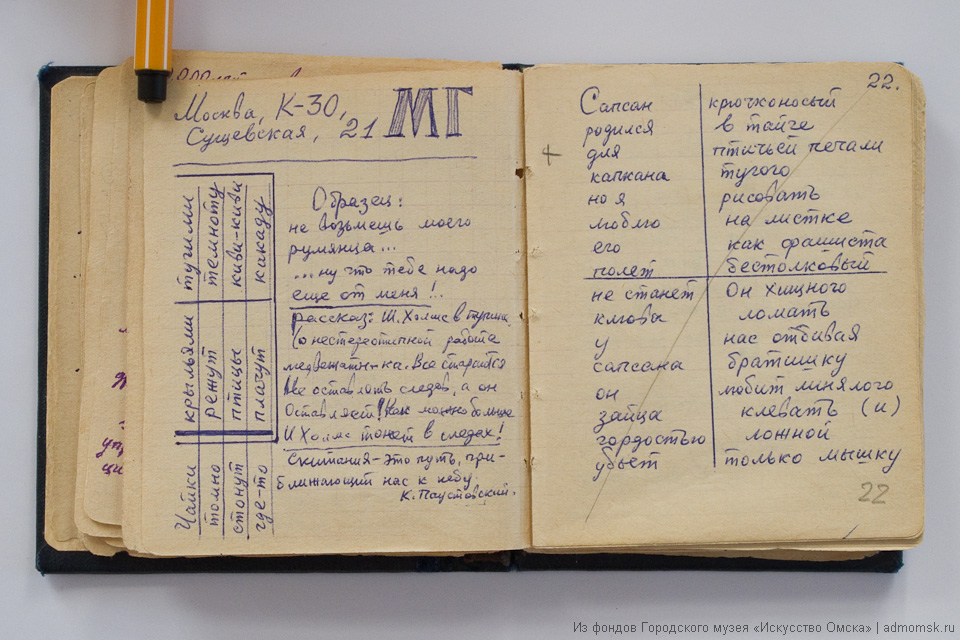 Москва, К-30,
Сущевская, 21 МГ
Образец:
не возьмешь моего
румянца...
...ну что тебе надо
еще от меня!..
рассказ: Ш. Холмс в тупике
(о нестереотипной работе
медвежатн-ка. Все стараются
не оставлять следов, а он
оставляет! Как можно больше
И Холмс тонет в следах!
Скитания – это путь, при-
ближающий нас к небу
К. Паустовский.
Чайки крыльями тугими
томно режут темноту
стонут птицы киви-киви
где-то плачут какаду
22.
Сапсан крючконосый
родился в тайге
+ для птичьей печали
капкана тугого
но я рисовать
люблю на листке
его как фашиста
полет бестолковый
не станет он хищного
клюва ломать
у нас отбивая
сапсана братишку
он любит линялого
зайца клевать (и)
гордостью ложной
убьет только мышку
22
Из фондов Городского музея «Искусство Омска» | admomsk.ru